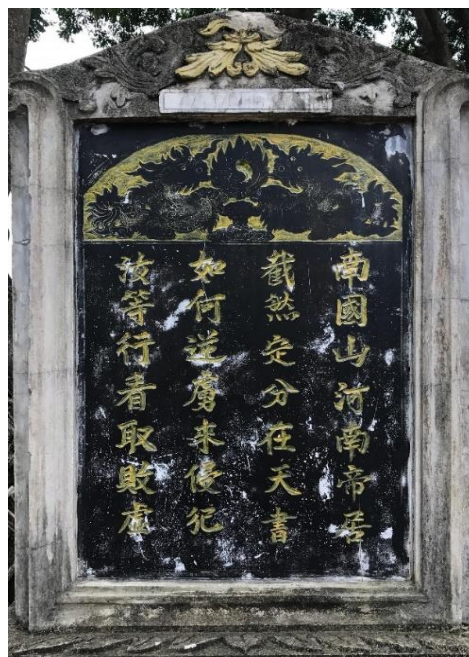 南國山河南帝居
截然定分在天書
如何逆虜來侵犯
汝等行看取敗虛